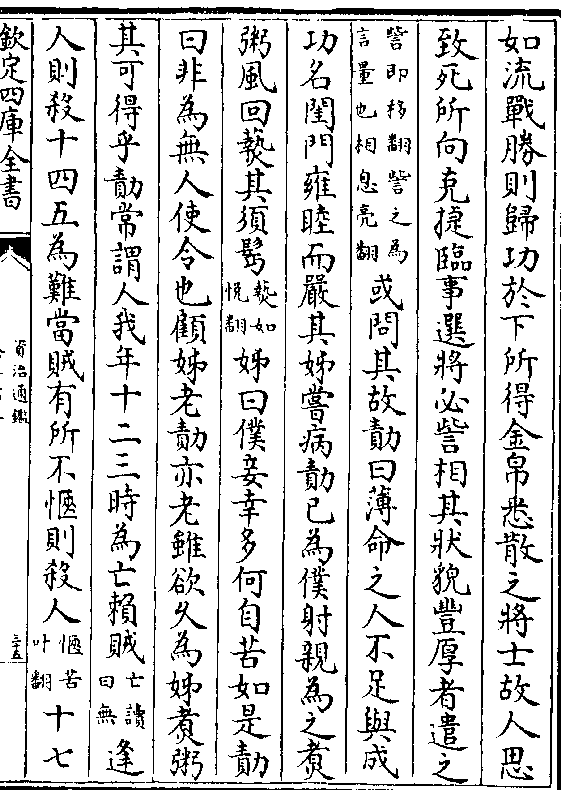 如流戰勝則歸功於下所得金帛悉散之將士故人思
致死所向克捷臨事選將必訾相其狀貌豐厚者遣之
訾即移翻訾之為
言量也相息亮翻
或問其故勣曰薄命之人不足與成
功名閨門雍睦而嚴其姊嘗病勣已為僕射親為之煮
粥風回爇其須鬂
爇如
悅翻
姊曰僕妾幸多何自苦如是勣
曰非為無人使令也顧姊老勣亦老雖欲乆為姊煮粥
其可得乎勣常謂人我年十二三時為亡賴賊
亡讀
曰無
逢
人則殺十四五為難當賊有所不愜則殺人
愜苦
叶翻
十七
欽定四庫全書
資治通鑑
三五